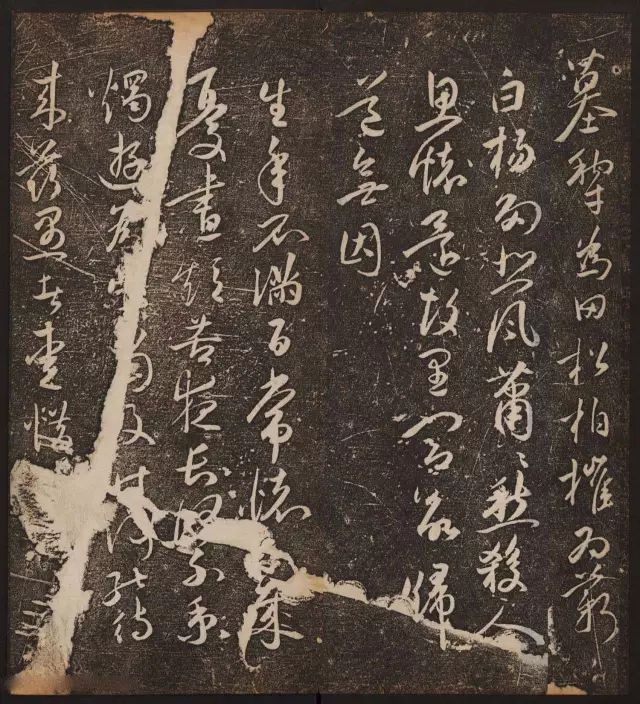 墓犁為田松柏摧為薪
白楊多悲風蕭〻愁殺人
思懷還故里閭欲歸
道無因
生年不滿百常懷千歲
憂晝短苦夜長何不秉
燭遊為樂當及時何能待
來茲愚者愛惜